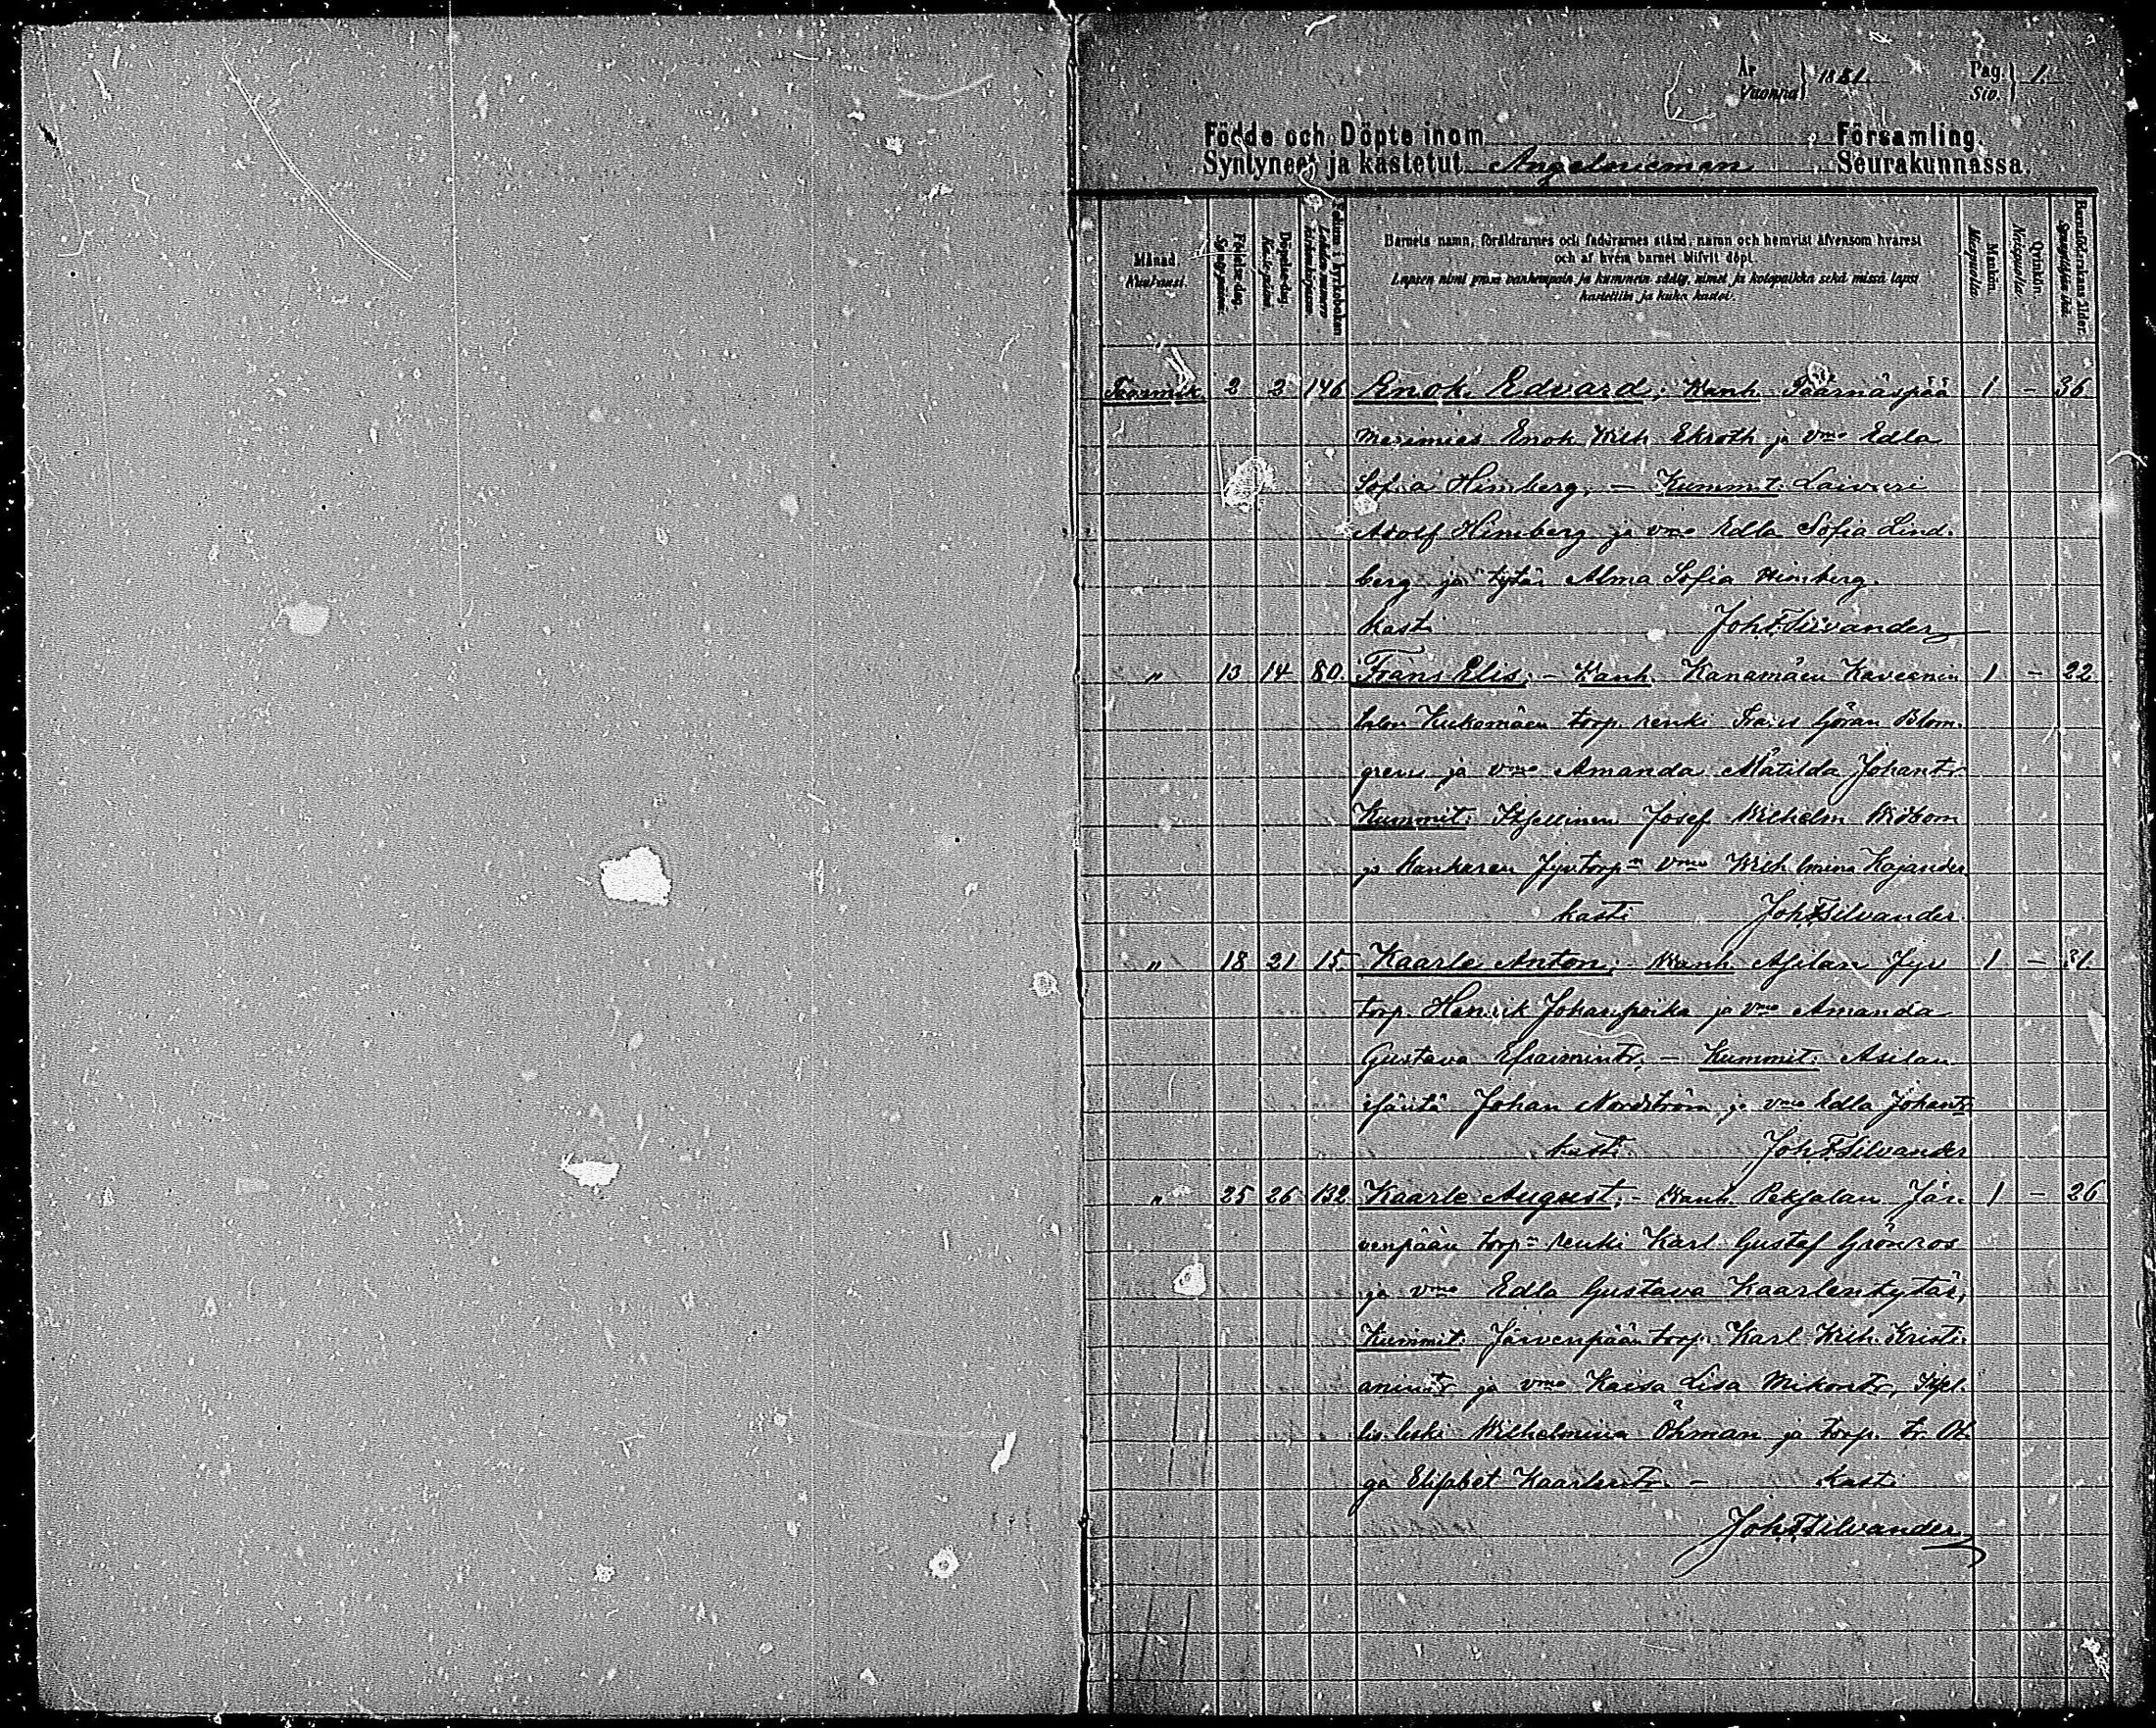 År 1881 Pag. 1.
Vuonna Siv.
Födde och Döpte inom Församling.
Syntyneet ja kastetut Angelniemen Seurakunnassa.
Månad. Kuukausi.
Födelse-dag. Syntymäpäivä.
Döpelse-dag. Kastepäivä.
Folium i kyrkoboken. Lehden numero kirkonkirjassa.
Barnets namn, föräldrarnes och faddrarnes stånd, namn och hemvist äfvensom hvarest
och af hvem barnet blifvit döpt.
Lapsen nimi ynnä vanhempain ja kummein sääty, nimet ja kotopaikka sekä missä lapsi
kastettiin ja kuka kastoi.
Mankön. Miespuolia.
Qvinkön. Naispuolia.
Barnaföderskans ålder. Synnyttäjän ikä.
Tammik. 2 2 146 Enok Edvard; Vanh. Päärnäspää 1 - 36
merimies Enok Wilh Ekroth ja vmo Edla
Sofia Himberg. - Kummit. Laivuri
Adolf Himberg ja vmo Edla Sofia Lind-
berg ja tytär Alma Sofia Himberg.
kasti Joh. F. Silvander
" 13 14 80. Frans Elis; - Vanh. Kanamäen 1 - 22
Kukomäen torp. renki Frans Göran Blom-
gren ja vmo Amanda Matilda Johantr
Kummit: Itsellinen Josef Wilhelm Widbom
ja Kankaren Jyv torpn vmo Wilhelmina Kajander
kasti Joh. F. Silvander.
" 18 21 15 Kaarle Anton; Vanh. Asilan Jyv 1 - 31.
torp. Henrik Johanpoika ja vmo Amanda
Gustava Efraimintr, - Kummit: Asilan
isäntä Johan Nordström ja vmo Edla Johantr
kasti Joh. F. Silvander
" 25 26 132 Kaarle August; - Vanh. Peksalan Jär- 1 - 26
venpään torpn renki Karl Gustaf Grönroos
ja vmo Edla Gustava Kaarlentytär,
Kummit: Järvenpään torp. Karl Wilh. Kristi-
anintr ja vmo Kaisa Lisa Mikontr, Itsel-
lis. leski Wilhelmina Öhman ja torp. tr. Ol-
ga Elisabet Kaarlentr. - kasti
Joh. F. Silvander